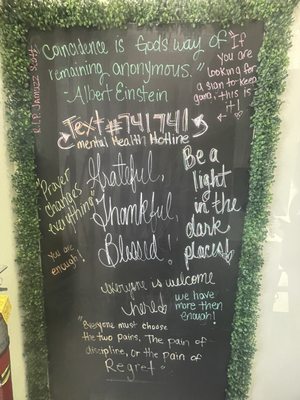 Coincidence is God's way of
remaining anonymous."
-Albert Einstein
"If
you are
looking for
a sign to keep
going, this is
it!
R.I.P.
Text #741741
mental Health Hotline
Grateful,
Thankful,
Blessed!
Be a
light
in the
dark
places!
Prayer
changes
everything!
You are
enough!
everyone is welcome
here
we have
more then
enough!
"Everyone must choose
the two pains. The pain of
discipline, or the pain of
Regret"